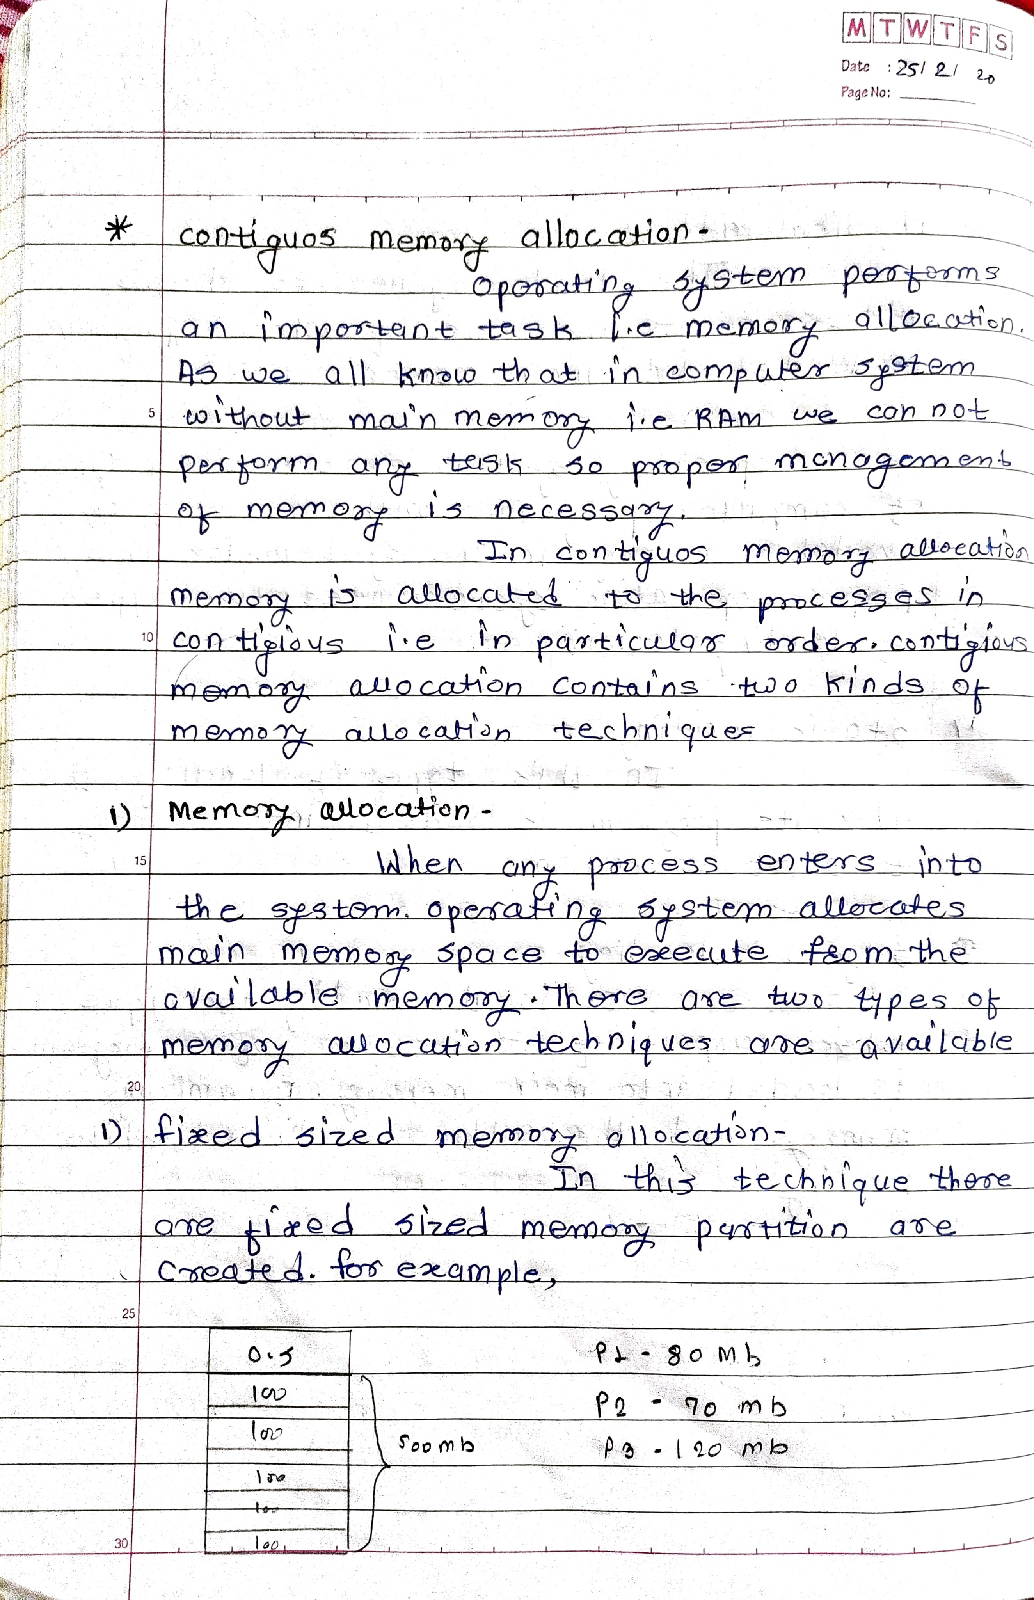 M T W T F S
Date : 25/ 2/ 20
Page No:
* contiguos memory allocation -
Operating system performs
an important task i.e memory allocation.
As we all know that in computer system
5 without main memory i.e RAM we can not
perform any task so proper management
of memory is necessary.
In contiguos memory allocation
memory is allocated to the processes in
10 contigious i.e in particular order. contigious
memory allocation contains two kinds of
memory allocation techniques
1) Memory allocation -
15 When any process enters into
the system. operating system allocates
main memory space to execute from the
available memory. There are two types of
memory allocation techniques are available
20
1) fixed sized memory allocation-
In this technique there
are fixed sized memory partition are
created. for example,
25
0.s P1 - 80 Mb
100 P2 - 70 mb
100 500mb P3 - 120 mb
100
100
30 100